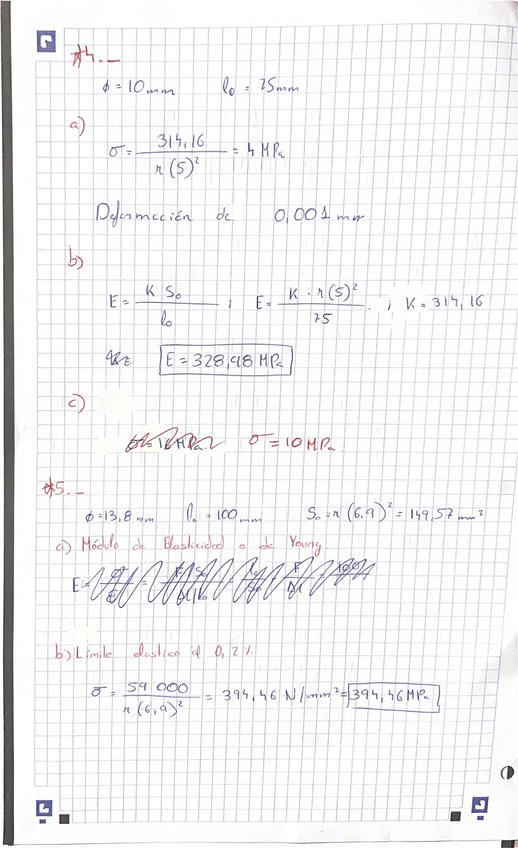 #4._
ϕ = 10 mm l₀ = 75 mm
a)
σ = 314,16 / π (5)² = 4 MPa
Deformación de 0,001 mm
b)
E = K S₀ / l₀ ; E = K · π (5)² / 75 . ; K = 314,16
E = 328,98 MPa
c)
σ = 10 MPa
#5._
ϕ = 13,8 mm l₀ = 100 mm S₀ = π (6,9)² = 149,57 mm²
a) Módulo de Elasticidad o de Young
E =
b) Límite elastico al 0,2 %
σ = 59 000 / π (6,9)² = 394,46 N/mm² = 394,46 MPa